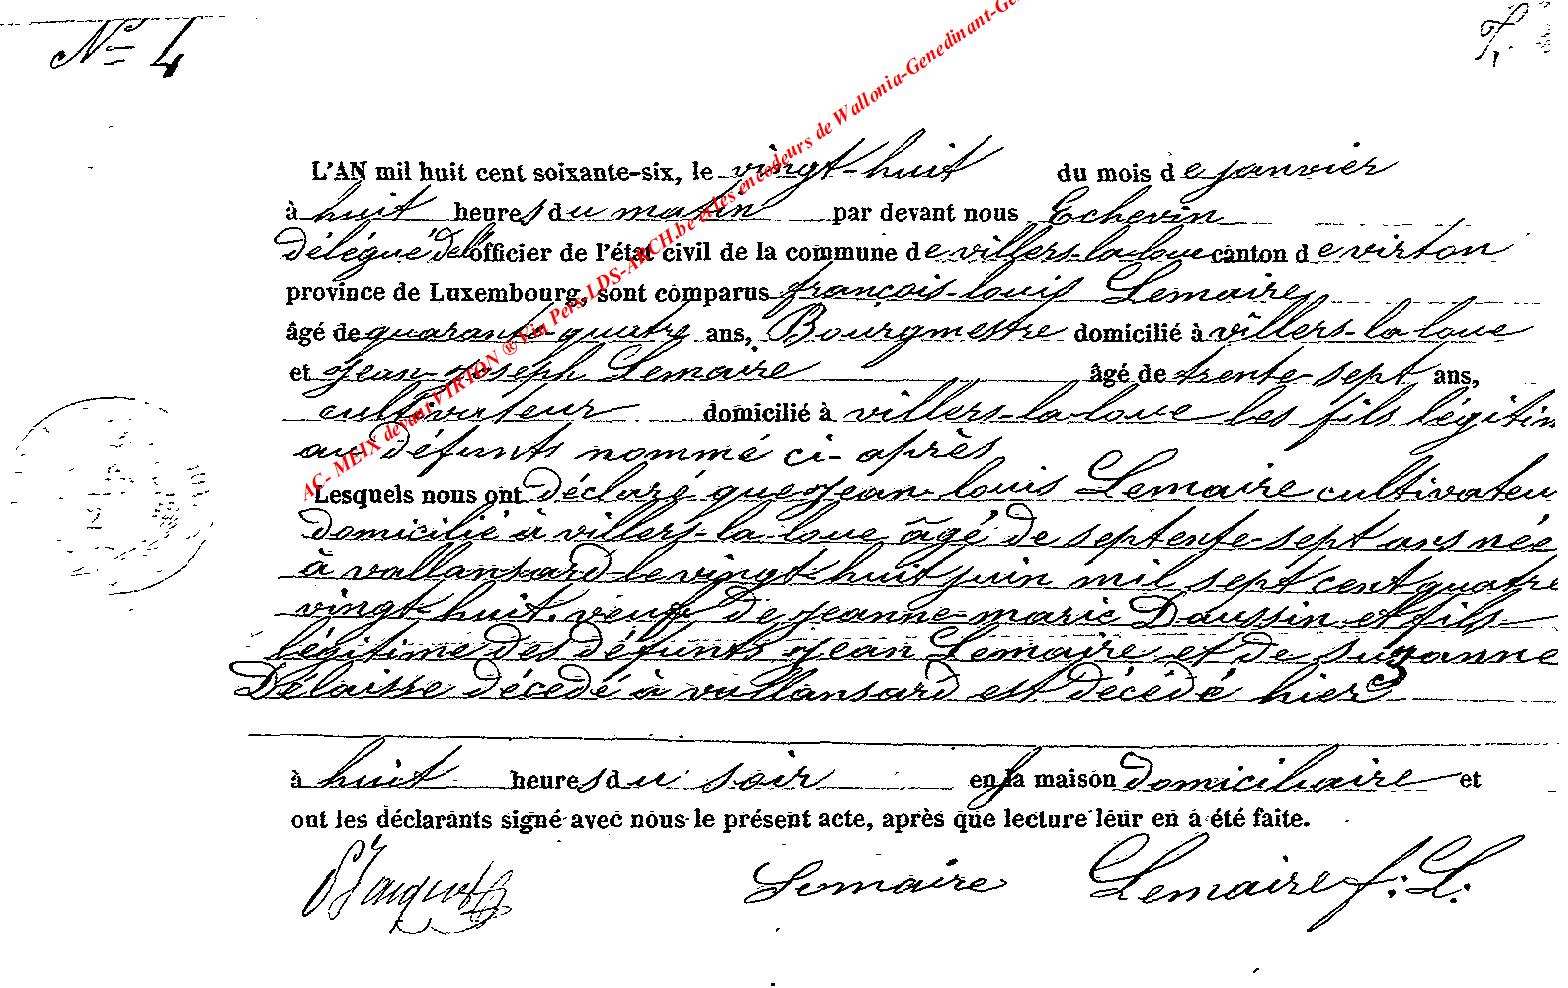 N° 4
L'AN mil huit cent soixante-six, le vingt-huit du mois de janvier
à huit heures du matin par devant nous Echevin
Délégué de l'officier de l'état civil de la commune de villers-la-loue canton de virton
province de Luxembourg, sont comparus françois-louis Lemaire
âgé de quarante-quatre ans, Bourgmestre domicilié à villers-la loue
et jean-joseph Lemaire âgé de trente-sept ans,
cultivateur domicilié à villers-la-loue les fils légitim
au défunts nommé ci-après
Lesquels nous ont déclaré que jean-louis Lemaire cultivateu
domicilié à villers-la-loue âgé de septente-sept ans née
à vallansard le vingt-huit juin mil sept cent quatre
vingt-huit. veuf de jeanne-marie Daussin et fils
légitime des défunts jean Lemaire et de suzanne
Délaisse décedé à vallansard est décédé hier
à huit heures du soir en la maison domiciliaire et
ont les déclarants signé avec nous le présent acte, après que lecture leur en a été faite.
Lemaire Lemaire f: L:
AC- MEIX devant VIRTON ® Via Pers-LDS-ARCH.be et les encodeurs de Wallonia-Genedinant-Ge